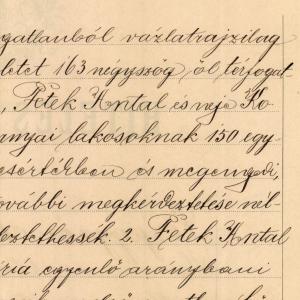 gatlanból vázlatrajzilag
letet 163 négyszög öl térfogat
, Fetek Antal és neje Ko
anyai lakósoknak 150 egy
esértékben és megengedi,
ovábbi megkérdeztetése nél
eztethessék. 2. Fetek Antal
ria egyenlő aránybani